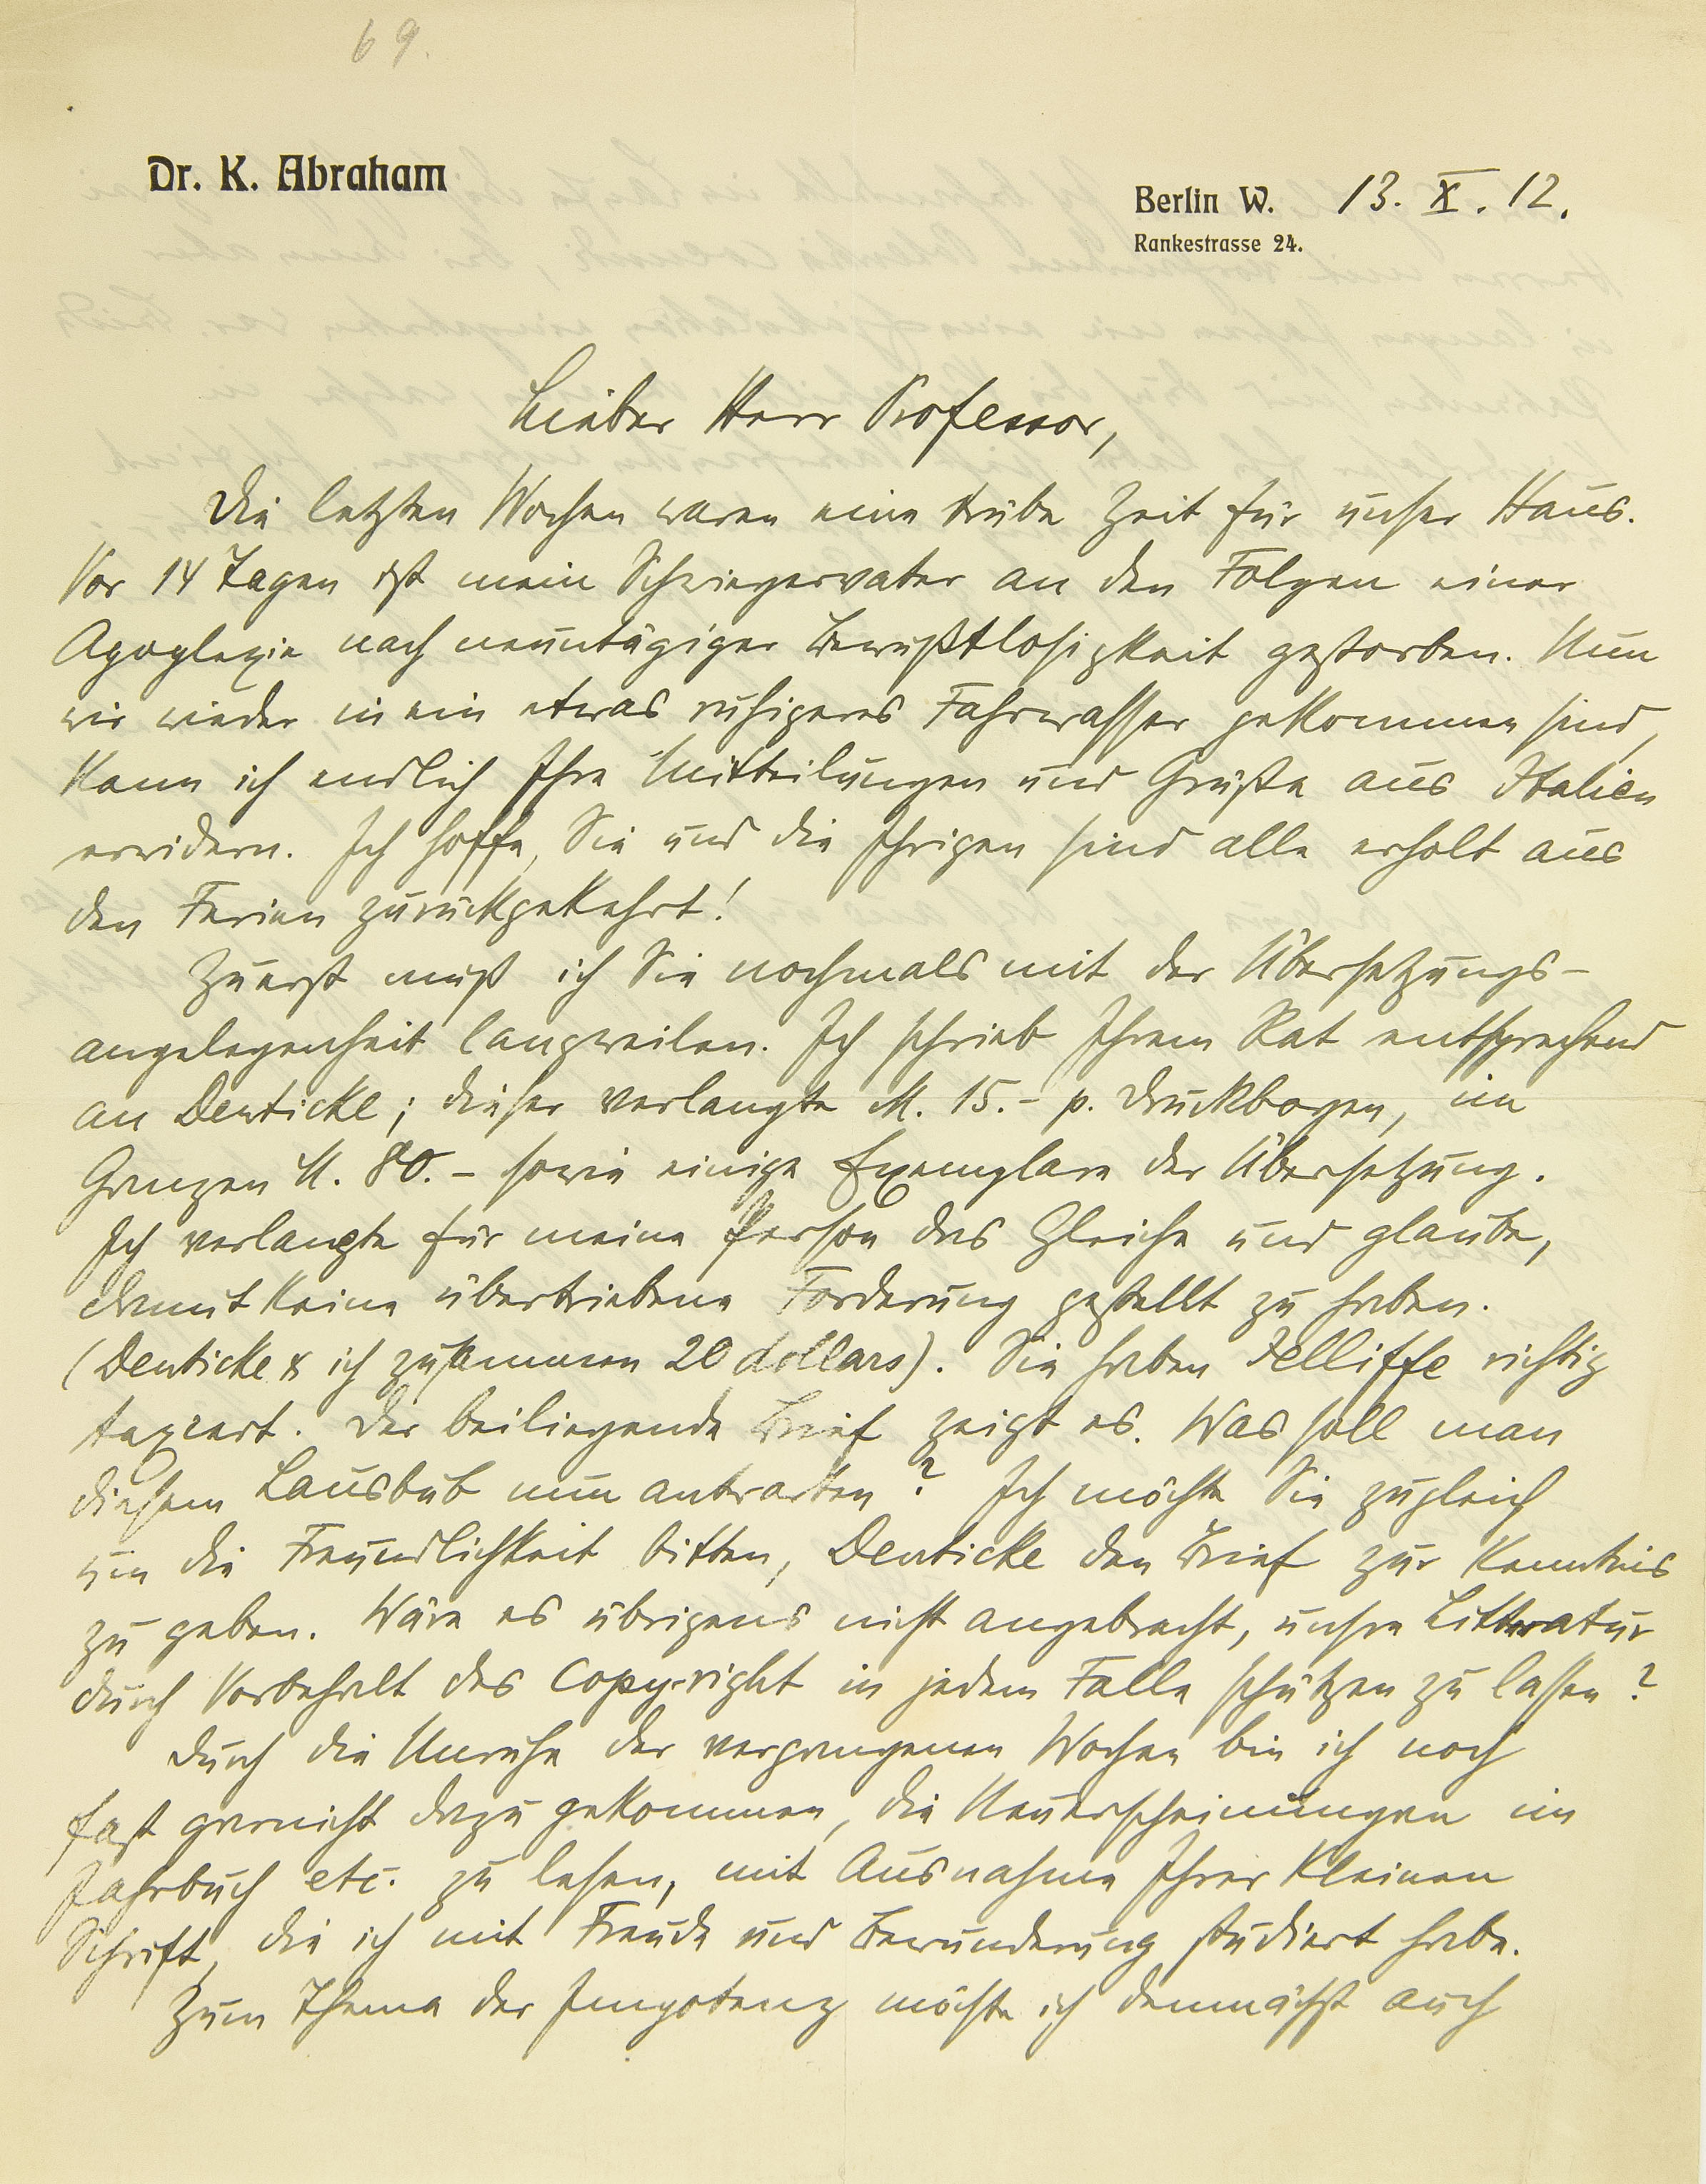 69.
Dr. K. Abraham
Berlin W. 13. X. 12.
Rankestrasse 24.
Lieber Herr Professor,
Die letzten Wochen waren eine trübe Zeit für unser Haus.
Vor 14 Tagen ist mein Schwiegervater an den Folgen einer
Apoplexie nach neuntägiger Bewußtlosigkeit gestorben. Nun
wir wieder in ein etwas ruhigeres Fahrwasser gekommen sind,
kann ich endlich Ihre Mitteilungen und Grüße aus Italien
erwidern. Ich hoffe, Sie und die Ihrigen sind alle erholt aus
den Ferien zurückgekehrt!
Zuerst muß ich Sie nochmals mit der Übersetzungs-
angelegenheit langweilen. Ich schrieb Ihrem Rat entsprechend
an Deuticke; dieser verlangte M. 15.- p. Druckbogen, im
Ganzen M. 80.- sowie einige Exemplare der Übersetzung.
Ich verlangte für meine Person das Gleiche und glaube,
damit keine übertriebene Forderung gestellt zu haben.
(Deuticke & ich zusammen 20 dollars). Sie haben Jelliffe richtig
taxiert. Der beiliegende Brief zeigt es. Was soll man
diesem Lausbub nun antworten? Ich möchte Sie zugleich
um die Freundlichkeit bitten, Deuticke den Brief zur Kenntnis
zu geben. Wäre es übrigens nicht angebracht, unsre Litteratur
durch Vorbehalt des Copy-right in jedem Falle schützen zu lassen?
Durch die Unruhe der vergangenen Wochen bin ich noch
fast garnicht dazu gekommen, die Neuerscheinungen im
Jahrbuch etc. zu lesen, mit Ausnahme Ihrer kleinen
Schrift, die ich mit Freude und Bewunderung studiert habe.
Zum Thema der Impotenz möchte ich demnächst auch